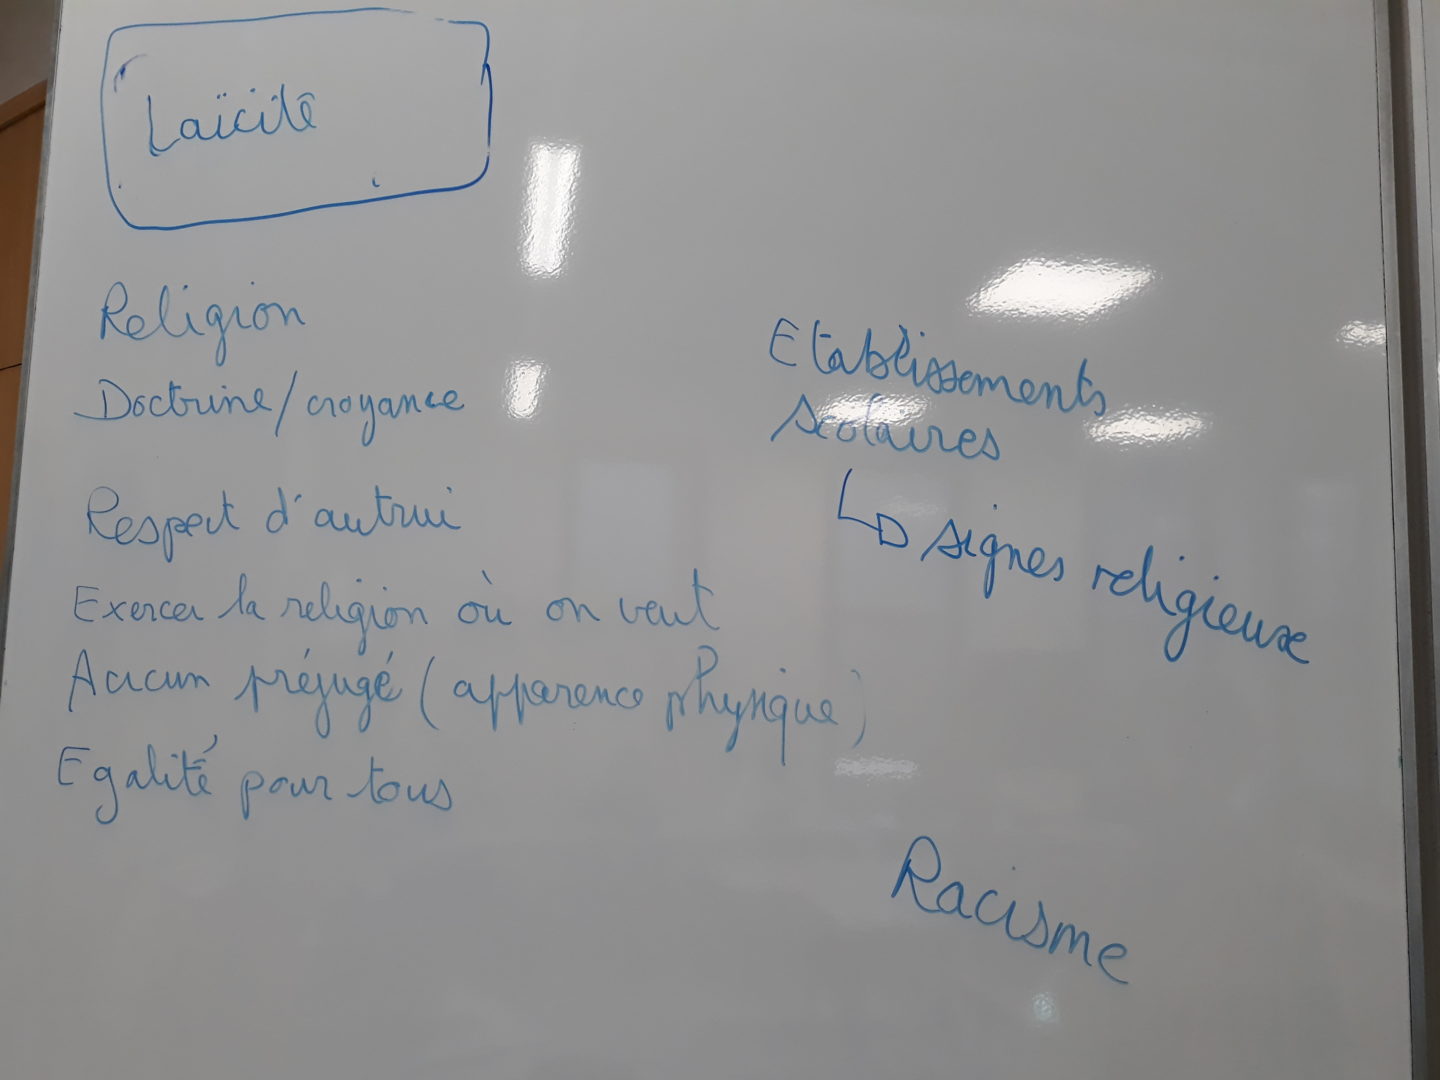 Laïcité
Religion
Doctrine/croyance
Respect d'autrui
Exercer la religion où on veut
Aucun préjugé (apparence physique)
Egalité pour tous
Etablissements
scolaires
signes religieux
Racisme